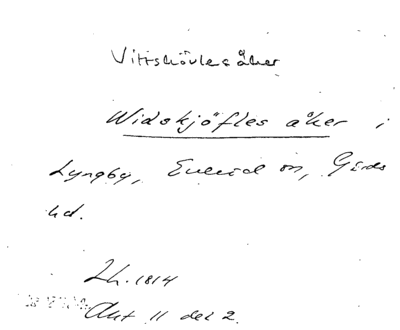 Vittskövles åker
Widskjöfles åker i
Lyngby, Everöd sn, Gärds
hd.
Lh. 1814
Akt 11 del 2